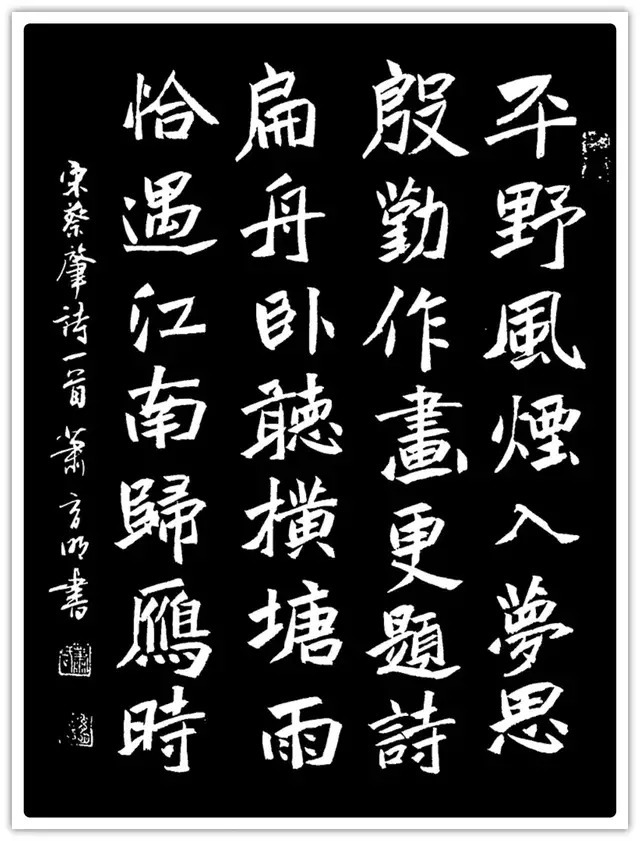 平野風煙入夢思
殷勤作畫更題詩
扁舟卧聽橫塘雨
恰遇江南歸鴈時
宋蔡肇詩一首 蕭方明書